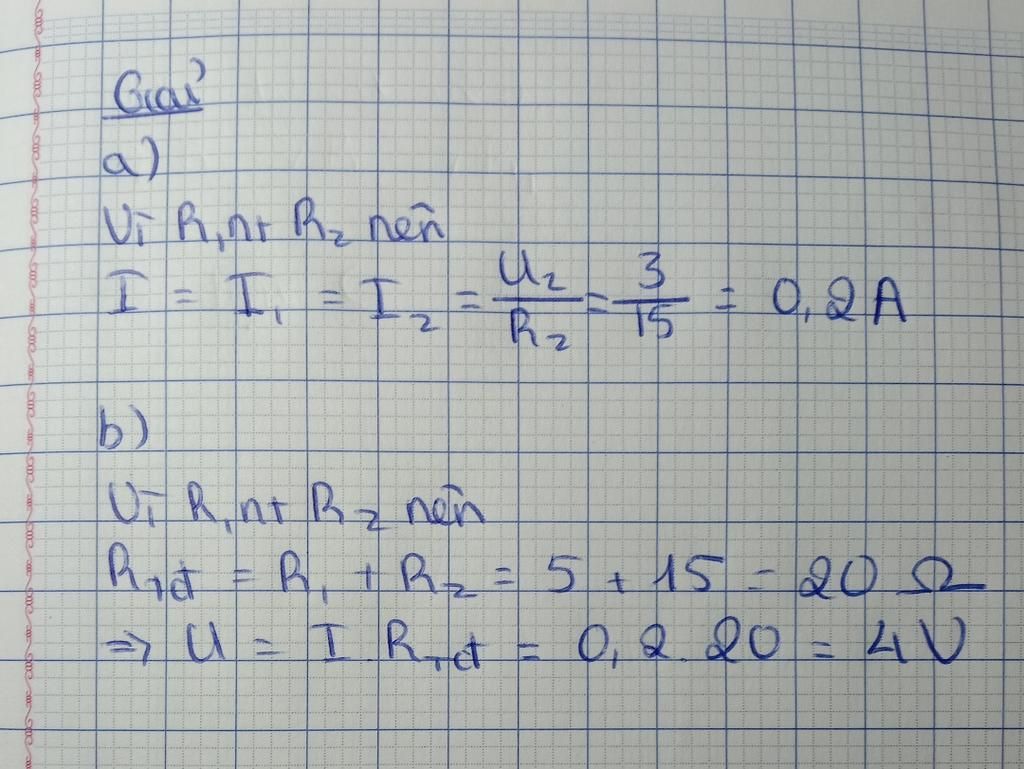 Giải
a)
Vì R₁ nt R₂ nên
I = I₁ = I₂ = U₂/R₂ = 3/15 = 0,2A
b)
Vì R₁ nt R₂ nên
Rtđ = R₁ + R₂ = 5 + 15 = 20 Ω
=> U = I Rtđ = 0,2.20 = 4V